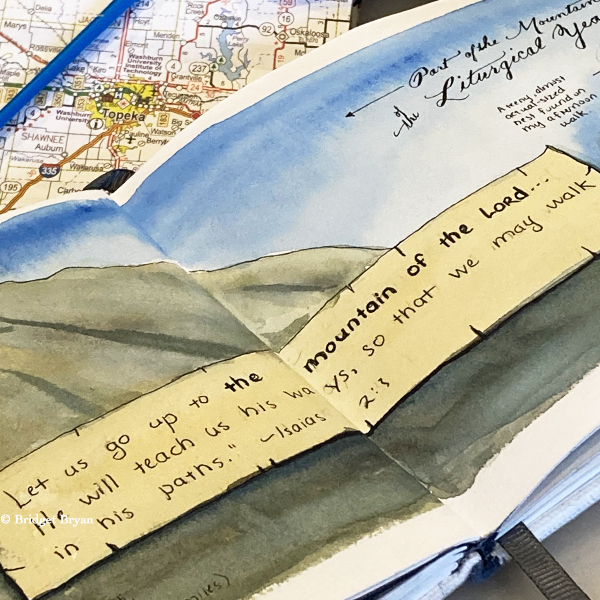 Part of the Mountain
of the Liturgical Yea
actual-sized
nest found on
my afternoon
walk
Let us go up to the mountain of the LORD...
He will teach us his wa ys, so that we may walk
in his paths." ~Isaias 2:3
miles)
© Bridget Bryan
Marys
Rossville
Hoyt
92
16
Oskaloosa
Elmont
Meriden
Washburn
University
Institute of
Technology
237
Grantville
24
Topeka
Washburn
University
Watson
Big S
Pauline
Berry
SHAWNEE
Auburn
Wakarusa
335
195
Carb